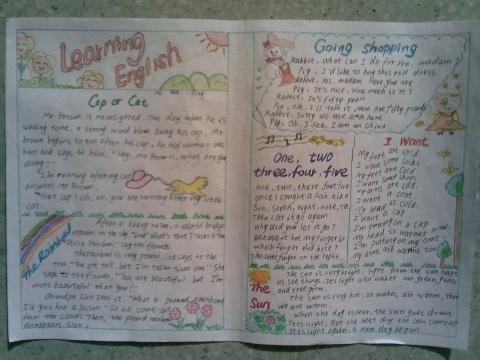 Learning
English
Cap or Cat
Mr Brown is nearsighted. One day when he's
walking home, a strong wind blows away his cap. Mr
brown begins to run after his cap. An old woman sees
him and says to him, "Hey, Mr Brown, what are you
doing?"
I'm running after my cap
answers Mr Brown.
"Your cap! Oh, no, you are running after my little
cat.
The Rainbow
After a heavy rain, a colorful bridge
appears in the sky.
rainbow," say the flowers.
The rainbow is very proud. She says to the
tree. "You are tall, but I'm taller than you." She
says to the flowers. "You are beautiful but I'm
more beautiful than you!!
Grandpa Sun sees it. "What a proud rainbow!
I'd give her a lesson." So he come out
from the clouds. Then the proud rainbow
disappears soon.
Going shopping
Rabbit. What can I do for you, madam?
Pig. I'd like to buy this red dress.
Rabbit. Yes, madam. Here you are
Pig. It's nice. How much is it?
Rabbit. It's fifty yuan.
Pig. Ok, I'll take it. Here are fifty pounds
Rabbit. Sorry we use RMB here
Pig. Oh, I see, I am in China
One, two
three, four, five
one, two, three, four, five
once I caught a fish alive
Six, seven, eight, nine, ten
Then I let it go again
why did you let it go?
Because it bit my finger so
which finger did it bite?
This little finger on the right.
I Want
My feet are cold.
I want some socks.
My feet are cold
I want shoes.
My arms are cold.
I want a coat.
My head is cold.
I want a cap
I'm putting on a cap.
My head is warmer now.
I'm putting on my coat
My arms are warmer now.
The
Sun
The sun is very bright. light from the sun helps
us see things. Its light also makes our green grass
and trees grow.
The sun is very hot. It makes air warm, then
we are warm.
When one day is over, the sun goes down.
It is night. But the next day the sun comes up
It is light again. A new day begins.